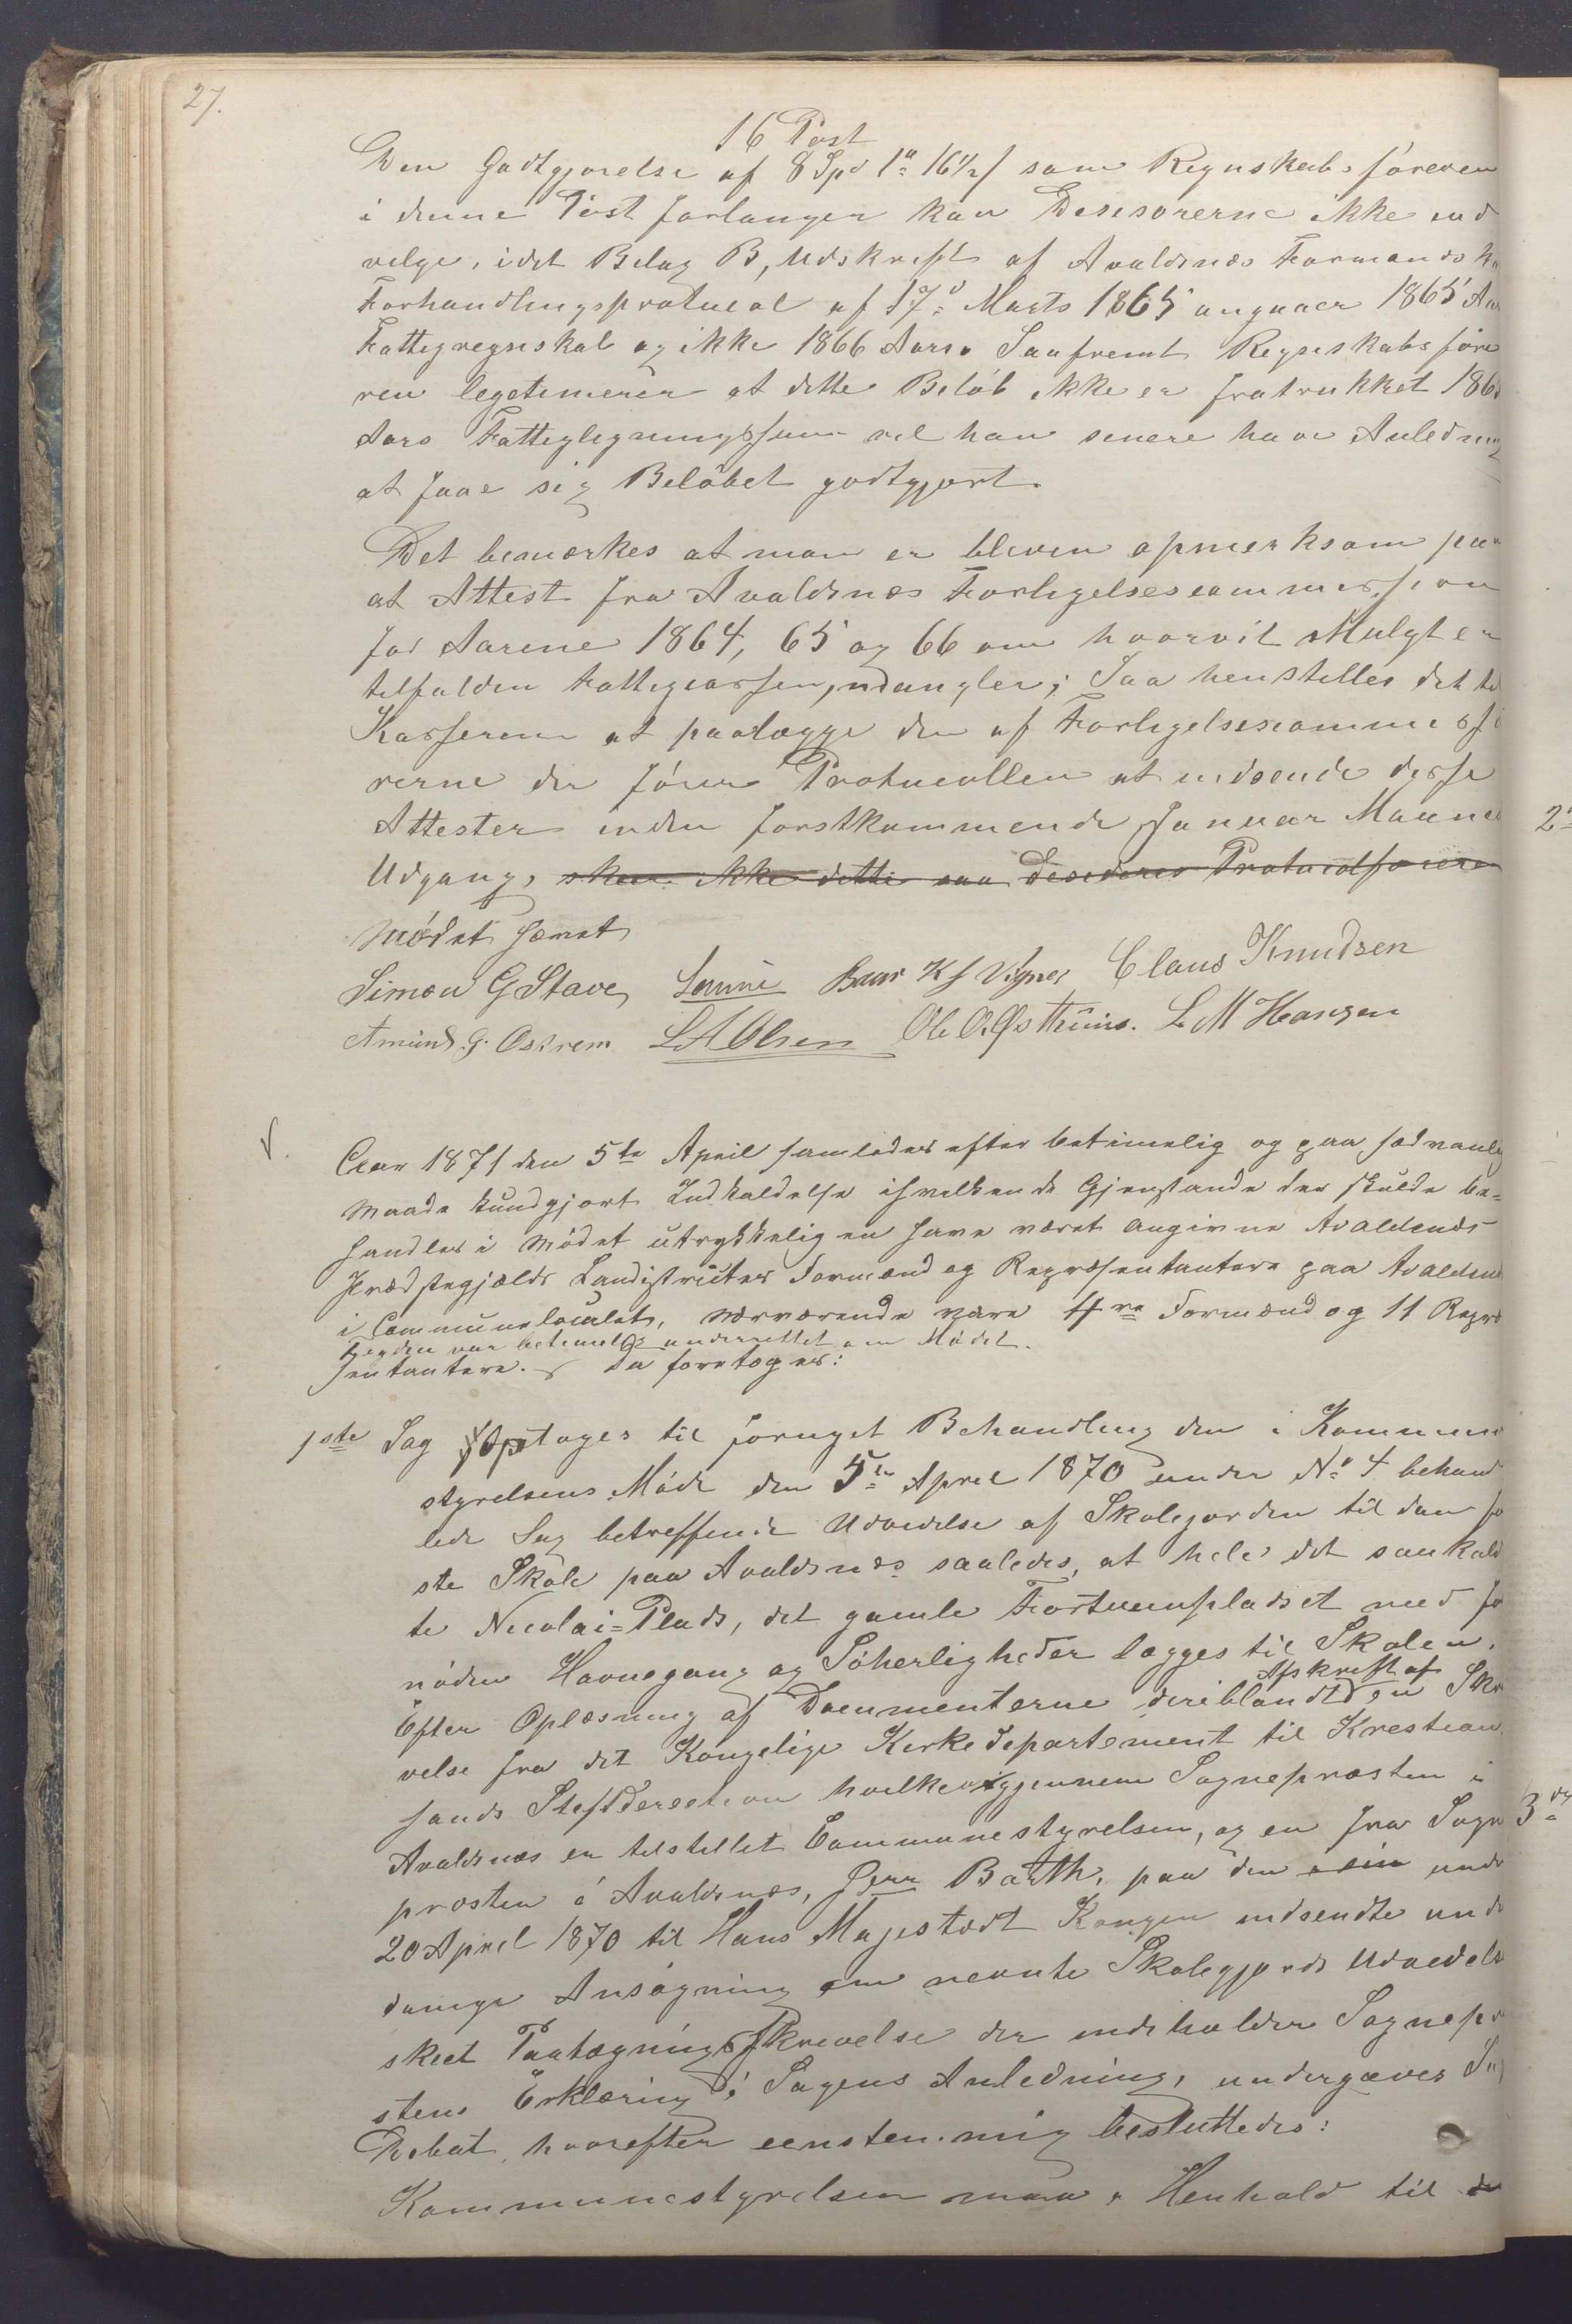 27.
16 Post
Den Godtgjørelse af 8 Spd 1 # 16 1/2 s som Regnskabsføreren
i denne Post forlanger kan Desisorerne ikke ind
vilge, idet Bilag B, Udskrift af Avaldsnæs Formandsk
Forhandlingsprotucol af 17de Marts 1865 angaaer 1865 Aar
Fattigregnskab og ikke 1866 Aars. Saafremt Regnskabsføre
ren legetimerer at dette Beløb ikke er fratrukket 186
Aars Fatteglegningssum vil han senere have Anledning
at faae sig Beløbet godtgjort.
Det bemærkes at man er bleven opmerksom paa
at Attest fra Avaldsnæs Forligelsescommission
for Aarene 1864, 65 og 66 om hvorvit Mulgter
tilfalden Fattigcassen, mangler; Saa henstilles det til
Kassereren at paalægge den af Forligelsescommissi
rerne der fører Protucollen at indsende disse
Attester inden førstkommende Januar Maaned
Udgang, skeer ikke dette saa Desideres Protucolfører
Mødet hævet
Simon G Stave Lounie Baar K J Vigner Claus Knudsen
Amund G. Østrem L A Olsen Ole O. Østhuus. L M Hansen
Aar 1871 den 5te April samledes efter betimelig og paa sædvanlig
Maade kundgjort Indkaldelse ihvilkende Gjenstande der skulde be=
handles i Mødet utrykkelig en have været angivne Avaldsnæs
Prædstegjælds Landistrikter Formænd og Representantere paa Avaldsnæs
i Communelocalet, nærværende vare 4re Formænd og 11 Repræ
Fogden var betimelig underrettet om Mødet.
sentantere. Da foretoges:
1ste Sag Optoges til fornyet Behandling den i Kommune
styrelsens Møde den 5te April 1870 under No 4 behand
lede Sag betreffende Udvidelse af Skolejorden til dan fa
ste Skole paa Avaldsnæs saaledes, at hele det saakald
te Nicolai=Plads, det gamle Fortuunpladset med for
nøden Havnegang og Søherligheder lægges til Skolen.
Efter Oplæsning af Documenterne deriblandt Afskrift af en Skri
velse fra det Kongelige Kirkedepartement til Krestian
sands Stiftderection hvilken gjennem Sognepræsten i
Avaldsnæs er tilstillet Communestyrelsen, og en fra Sogne
præsten i Avaldsnæs, Herr Barth, paa den under
20 April 1870 til Hans Majestædt Kongen indsendte unde
danige Ansøgning om nevnte Skolegjords Udvidelse
skeet Paategningsskrevelse der indeholder Sognepræ
stens Erklæring i Sagens Anledning, undergaves Sag
Debat, hvorefter eenstemmig besluttedes:
Kommunestyrelsen maa i Henhold til de
2
3